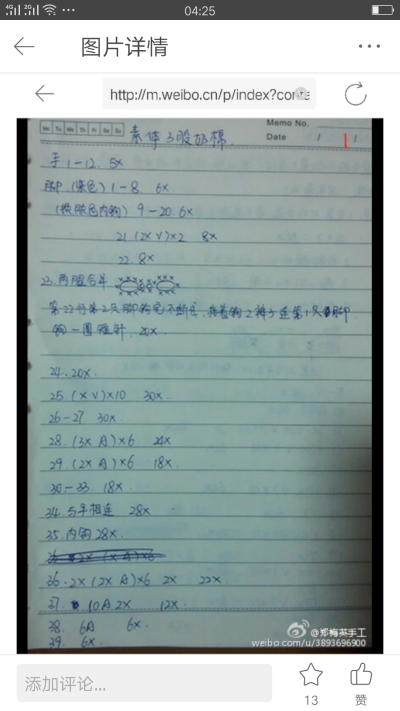 4G 2G 04:25
图片详情
http://m.weibo.cn/p/index?conta
Mo Tu We Th Fr Sa Su
Memo No.
Date / /
素体 3股奶棉.
手 1-12. 5x
脚 (染色) 1-8. 6x.
(换肤色内钩) 9-20. 6x
21. (2x V)×2 8x
22. 8x
23. 两腿合并
第22行第2只脚钩完不断线, 接着钩2辫子连第1只脚
钩一圈短针. 20x
24. 20x.
25. (x V)×10 30x.
26-27 30x
28. (3x A)×6 24x
29. (2x A)×6 18x
30-33. 18x
34. 与手相连 28x
35. 内钩 28x
36. 2x (2x A)×6 2x 22x
37. 10A 2x 12x.
38. 6A 6x.
39. 6x.
@郑梅英手工
weibo.com/u/3893696900
添加评论...
13
赞